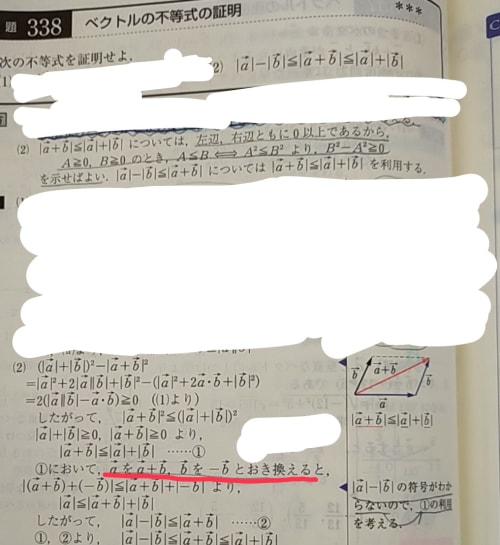 題 338 ベクトルの不等式の証明 ***
次の不等式を証明せよ.
(2) |a⃗|-|b⃗|≦|a⃗+b⃗|≦|a⃗|+|b⃗|
(2) |a⃗+b⃗|≦|a⃗|+|b⃗| については, 左辺, 右辺ともに0以上であるから,
A≧0, B≧0 のとき, A≦B ⟺ A²≦B² より, B²-A²≧0
を示せばよい. |a⃗|-|b⃗|≦|a⃗+b⃗| については |a⃗+b⃗|≦|a⃗|+|b⃗| を利用する.
(2) (|a⃗|+|b⃗|)²-|a⃗+b⃗|²
=|a⃗|²+2|a⃗||b⃗|+|b⃗|²-(|a⃗|²+2a⃗・b⃗+|b⃗|²)
=2(|a⃗||b⃗|-a⃗・b⃗)≧0 ((1)より)
したがって, |a⃗+b⃗|²≦(|a⃗|+|b⃗|)²
|a⃗|+|b⃗|≧0, |a⃗+b⃗|≧0 より,
|a⃗+b⃗|≦|a⃗|+|b⃗| ……①
①において, a⃗ を a⃗+b⃗, b⃗ を -b⃗ とおき換えると,
|(a⃗+b⃗)+(-b⃗)|≦|a⃗+b⃗|+|-b⃗| より,
|a⃗|≦|a⃗+b⃗|+|b⃗|
したがって, |a⃗|-|b⃗|≦|a⃗+b⃗| ……②
①, ②より, |a⃗|-|b⃗|≦|a⃗+b⃗|≦|a⃗|+|b⃗|
b⃗ a⃗+b⃗ b⃗
a⃗
|a⃗+b⃗|≦|a⃗|+|b⃗|
|a⃗|-|b⃗| の符号がわか
らないので, ①の利用
を考える.